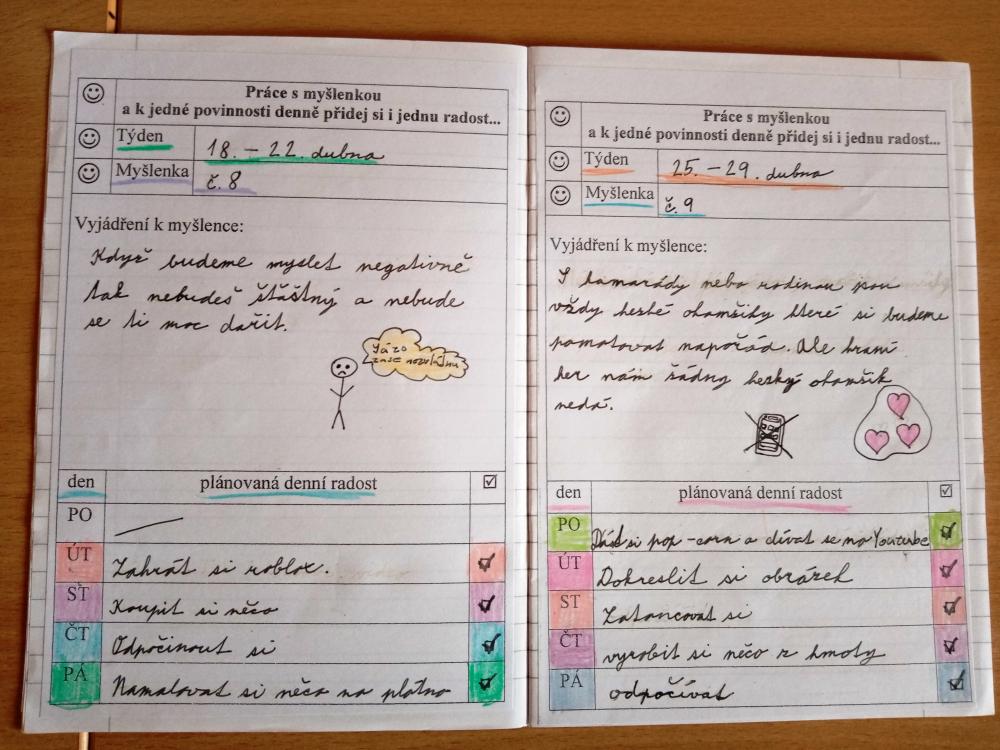 Práce s myšlenkou
a k jedné povinnosti denně přidej si i jednu radost...
Týden 18. – 22. dubna
Myšlenka č. 8
Vyjádření k myšlence:
Když budeme myslet negativně
tak nebudeš šťastný a nebude
se ti moc dařit.
Já to
zase nezvládnu
den plánovaná denní radost ☑
PO
ÚT Zahrát si roblox.
ST Koupit si něco
ČT Odpočinout si
PÁ Namalovat si něco na plátno
Práce s myšlenkou
a k jedné povinnosti denně přidej si i jednu radost...
Týden 25. – 29. dubna
Myšlenka č. 9
Vyjádření k myšlence:
S kamarády nebo rodinou jsou
vždy hezké okamžiky které si budeme
pamatovat napořád. Ale hraní
her nám žádný hezký okamžik
nedá.
den plánovaná denní radost ☑
PO Dát si pop-corn a dívat se na Youtube
ÚT Dokreslit si obrázek
ST Zatancovat si
ČT vyrobit si něco z hmoty
PÁ odpočívat